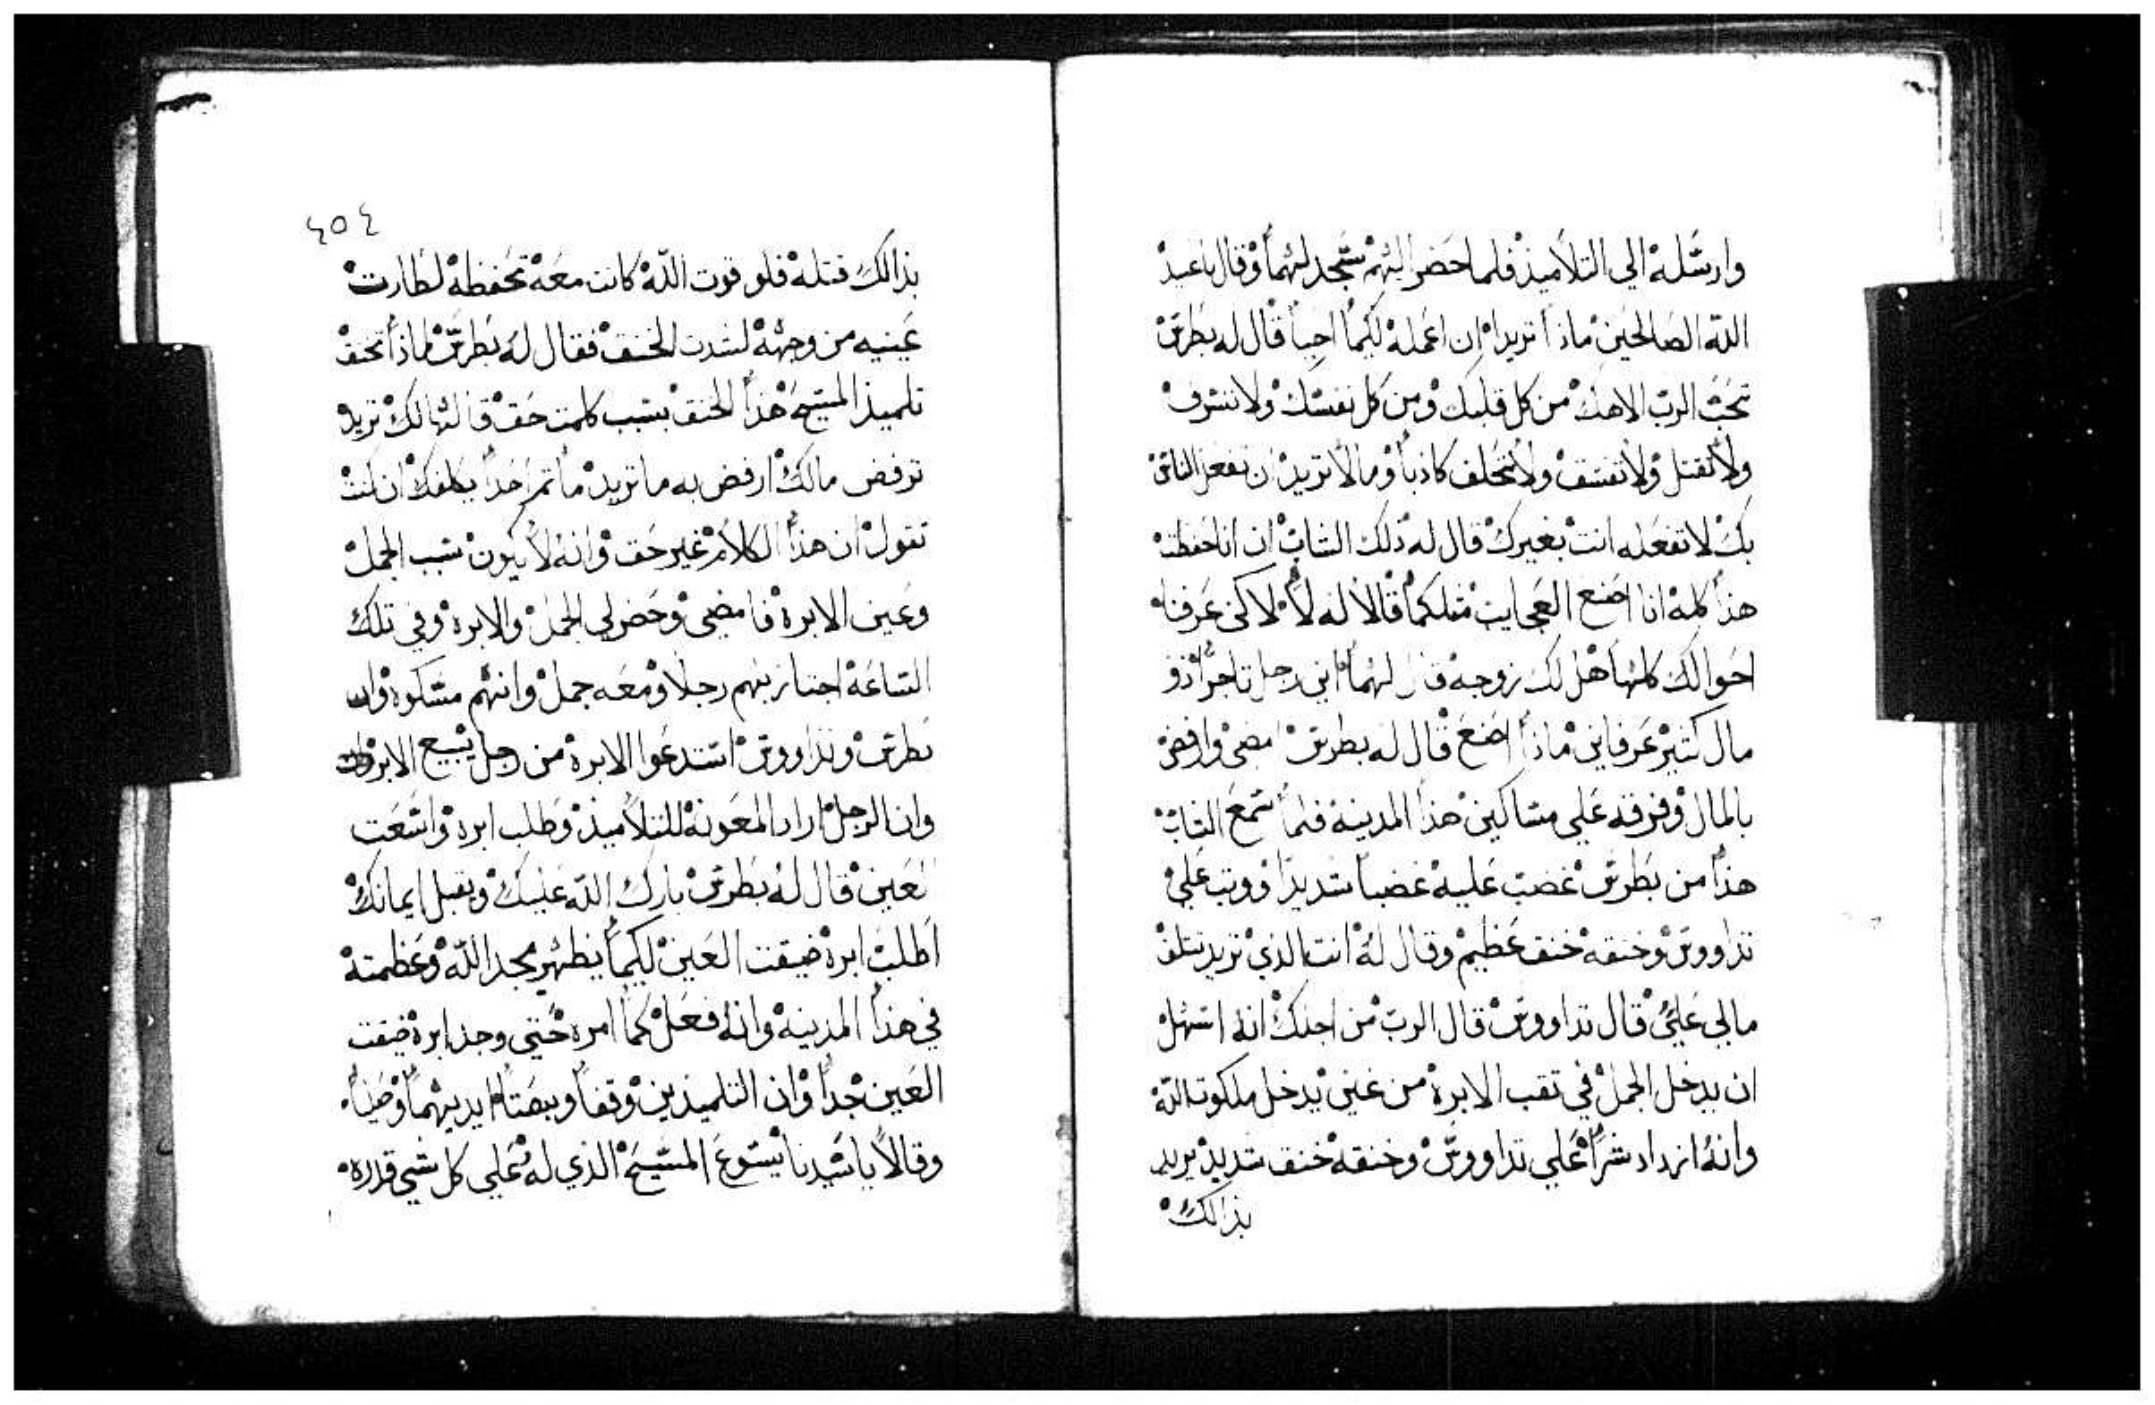 وارسله الي التلاميذ فلما حضر اليهم سجد لهما وقال ياعبيد
الله الصالحين ماذا تريدا ان اعمله لكيما احيا قال له بطرس
تحب الرب الاهك من كل قلبك ومن كل نفسك ولا تسرف
ولا تقتل ولا تفسق ولا تحلف كاذبا وما لا تريد ان تفعل الناس
بك لا تفعله انت بغيرك قال له ذلك الشاب ان انا حفظت
هذا كله انا اصنع العجايب مثلكما قالا له لا لاكن عرفنا
احوالك كلها هل لك زوجه قال لهما اني رجل تاجرا ذو
مال كتير عرفاني ماذا اصنع قال له بطرس امضي وارفض
بالمال وفرقه علي مساكين هذا المدينه فلما سمع الشاب
هذا من بطرس غضب عليه غضبا شديدا ووتب علي
تداووس وخنقه خنق عظيم وقال له انت الذي تريد تتلف
مالي علي قال تداووس قال الرب من اجلك انه اسهل
ان يدخل الجمل في تقب الابرة من غني يدخل ملكوت الله
وانه ازداد شرا علي تداووس وخنقه خنق شديد يريد
بذالك
٤٥٤
بذالك قتله فلو قوت الله كانت معه تحفظه لطارت
عينيه من وجهه لشدت الخنق فقال له بطرس لماذا تخنق
تلميذ المسيح هذا الخنق بسبب كلمت حق قالها لك تريد
ترفض مالك ارفض به ما تريد ما تم احدا يكلفك ان كنت
تقول ان هذا الكلام غير حق وانه لا يكون سبب الجمل
وعين الابرة فامضي وحضر لي الجمل والابرة وفي تلك
الساعه اجتاز بهم رجلا ومعه جمل وانهم مسكوه وان
بطرس وتداووس استدعوا الابرة من رجل يبيع الابر
وان الرجل اراد المعونه للتلاميذ وطلب ابره واسعت
العين قال له بطرس بارك الله عليك ويقبل ايمانك
اطلب ابرة ضيقت العين لكيما يظهر مجد الله وعظمته
في هذا المدينه وانه فعل كما امره حتي وجد ابرة ضيقت
العين جدا وان التلميذين وقفا وبسطا ايديهما وصليا
وقالا يا سيدنا يسوع المسيح الذي له علي كل شي قدره